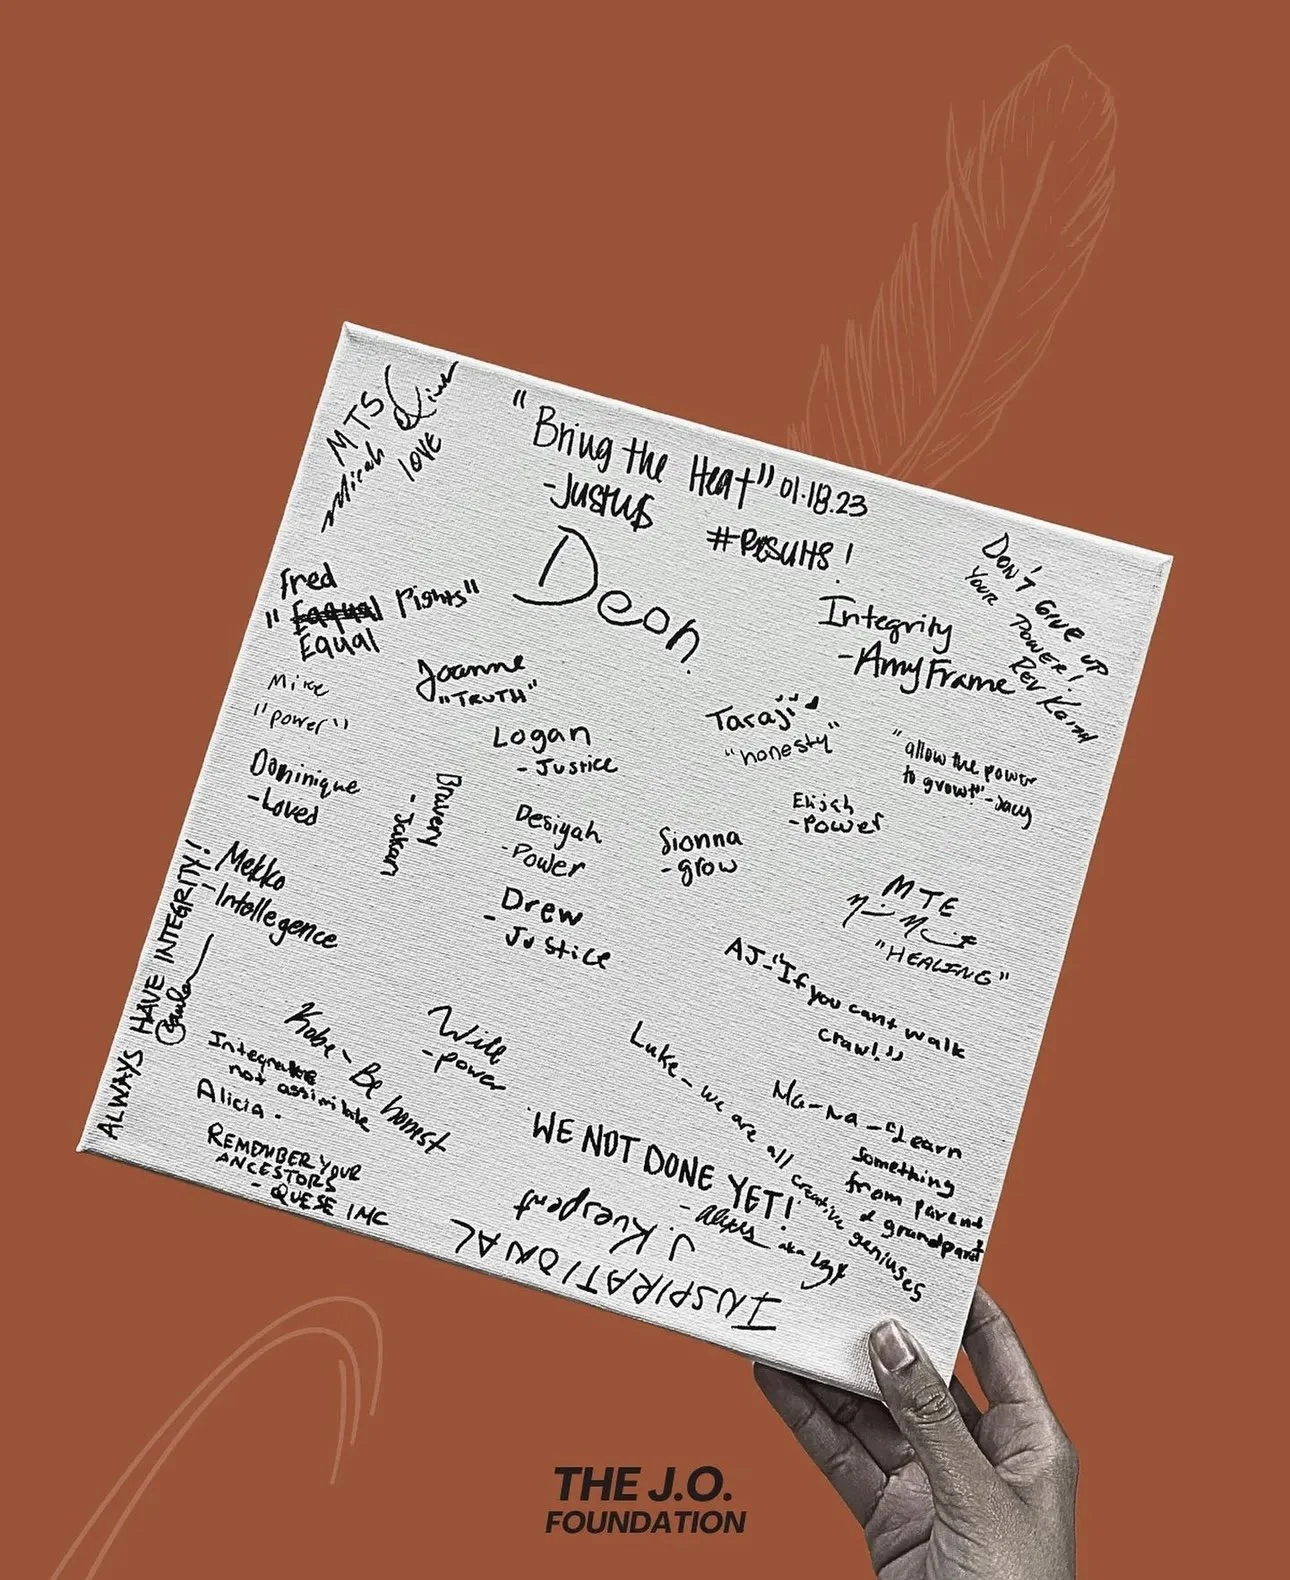 MTS
Micah
love
"Bring the Heat" 01.18.23
-Justus
#Results!
Deon
DON'T GIVE UP
YOUR POWER!
REV
fred
" Rights"
Equal
Integrity
-Amy Frame
Mike
"power"
Joanne
"TRUTH"
Taraji
"honesty"
"allow the power
to grow!"
Logan
- Justice
Dominique
-Loved
Bravery
Elijah
-Power
Desiyah
-Power
Sionna
-grow
Mekko
-Intellegence
Drew
- Justice
MTE
"HEALING"
AJ-"If you cant walk
crawl."
ALWAYS HAVE INTEGRITY!
Kobe - Be honest
Will
-power
Integrate
not assimilate
Alicia.
Luke - we are all creative geniuses
Ma-Na-"Learn
something
from parent
& grandparent
REMEMBER YOUR
ANCESTORS
- QUESE IMC
WE NOT DONE YET!
- aka
INSPIRATIONAL
THE J.O.
FOUNDATION